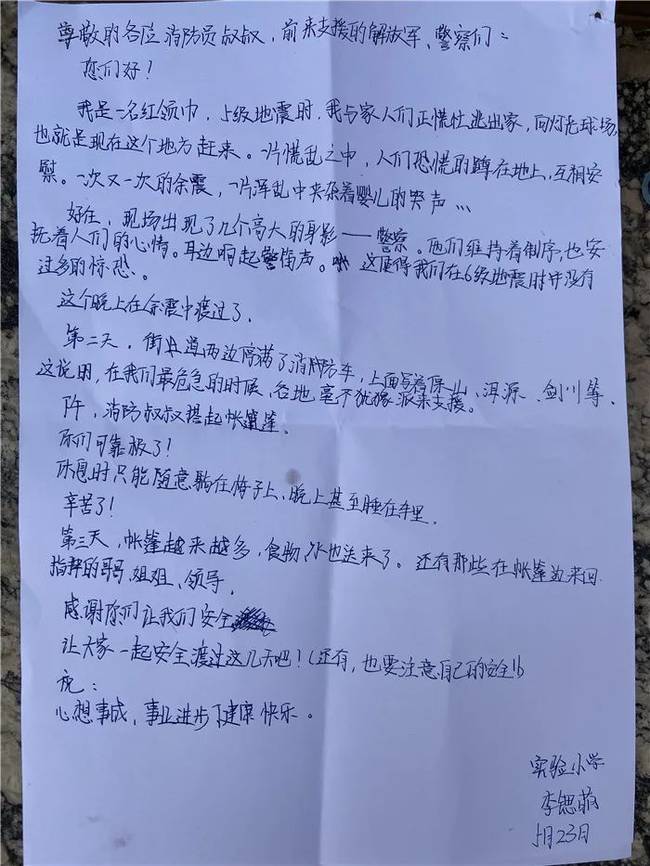 尊敬的各位消防员叔叔，前来支援的解放军、警察们：
您们好！
我是一名红领巾，5级地震时，我与家人们正慌忙逃出家，向灯光球场，
也就是现在这个地方赶来。一片慌乱之中，人们恐慌的蹲在地上，互相安
慰。一次又一次的余震，一片浑乱中夹杂着婴儿的哭声…
好在，现场出现了几个高大的身影——警察。他们维持着秩序，也安
抚着人们的心情。耳边响起警笛声。这使得我们在6级地震时并没有
过多的惊恐。
这个晚上在余震中渡过了.
第二天，街道两边停满了消防车，上面写着保山、洱源、剑川等.
这说明，在我们最危急的时候，各地毫不犹豫派来支援。
下午，消防叔叔搭起帐篷.
你们可靠极了！
休息时只能随意躺在椅子上、晚上甚至睡在车里.
辛苦了！
第三天，帐篷越来越多，食物水也送来了。还有那些在帐篷边来回
指挥的哥哥、姐姐、领导.
感谢你们让我们安全
让大家一起安全渡过这几天吧！(还有，也要注意自己的安全!!)
祝：
心想事成，事业进步，健康快乐。
实验小学
李思萌
5月23日